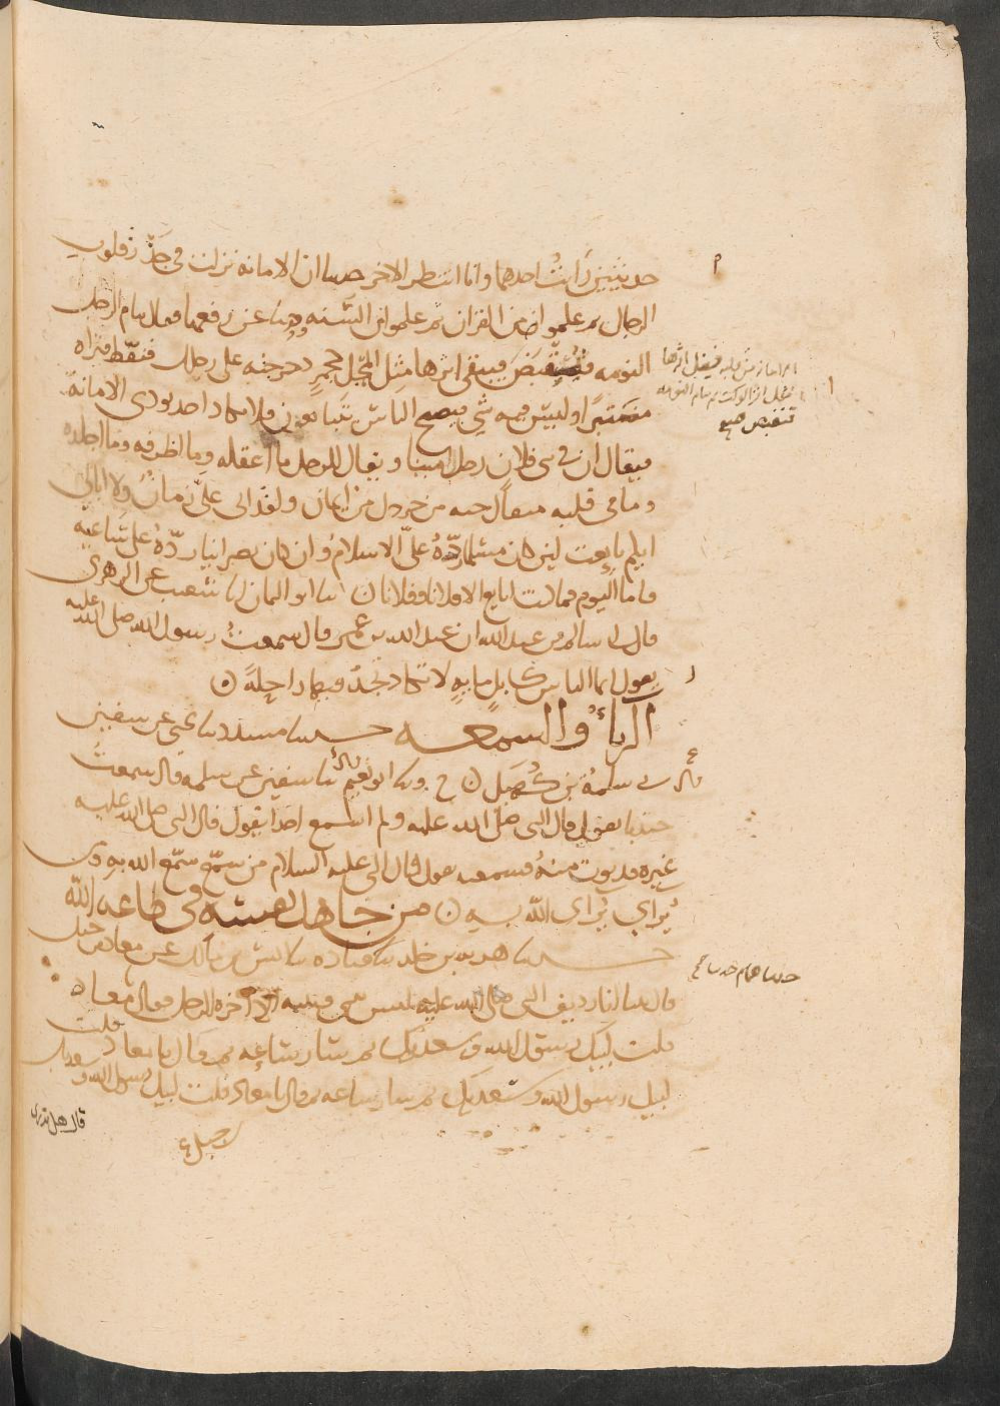 حديثين رأيت احدهما وانا انتظر الاخر حدثنا ان الامانة نزلت في جذر قلوب
الرجال ثم علموا من القران ثم علموا من السنه وحدثنا عن رفعها قال ينام الرجل
النومه فتقبض فيبقى اثرها مثل المجل كجمر دحرجته على رجلك فنفط فتراه
الامانة من قلبه فيظل اثرها
مثل اثر الوكت ثم ينام النومه
فتقبض صح
منتبرا وليس فيه شي فيصبح الناس يتبايعون فلا يكاد احد يودي الامانة
فيقال ان في بني فلان رجلا امينا ويقال للرجل ما اعقله وما اظرفه وما اجلده
وما في قلبه مثقال حبه من خردل من ايمان ولقد اتى علي زمان ولا ابالي
ايكم بايعت لين كان مسلما رده علي الاسلام وان كان نصرانيا رده علي ساعيه
فاما اليوم فما كنت ابايع الا فلانا وفلانا ن انا ابو اليمان انا شعيب عن الزهري
قال انا سالم بن عبد الله ان عبد الله بن عمر قال سمعت رسول الله صلى الله عليه
يقول انما الناس كابل مايه لا تكاد تجد فيها راحلة ن
الرياء والسمعه حدثنا مسدد نا يحيى عن سفين
قال ني سلمة بن كهيل ن ح ونا ابو نعيم قال نا سفين عن سلمه قال سمعت
جندبا يقول قال النبي صلى الله عليه ولم اسمع احدا يقول قال النبي صلى الله عليه
غيره فدنوت منه فسمعته يقول قال النبي عليه السلام من سمع سمع الله به ومن
يراي يراي الله به ن من جاهد نفسه في طاعه الله
حدثنا هدبه بن خلد نا قتاده نا انس بن مالك عن معاذ بن جبل
حدثنا همام صح
قال بينا انا رديف النبي صلى الله عليه ليس بيني وبينه الا اخره الرحل فقال يا معاذ
قلت لبيك رسول الله وسعديك ثم سار ساعه ثم قال يا معاذ قلت
لبيك رسول الله وسعديك ثم سار ساعه ثم قال يا معاذ قلت لبيك رسول الله وسعديك
قال هل تدري